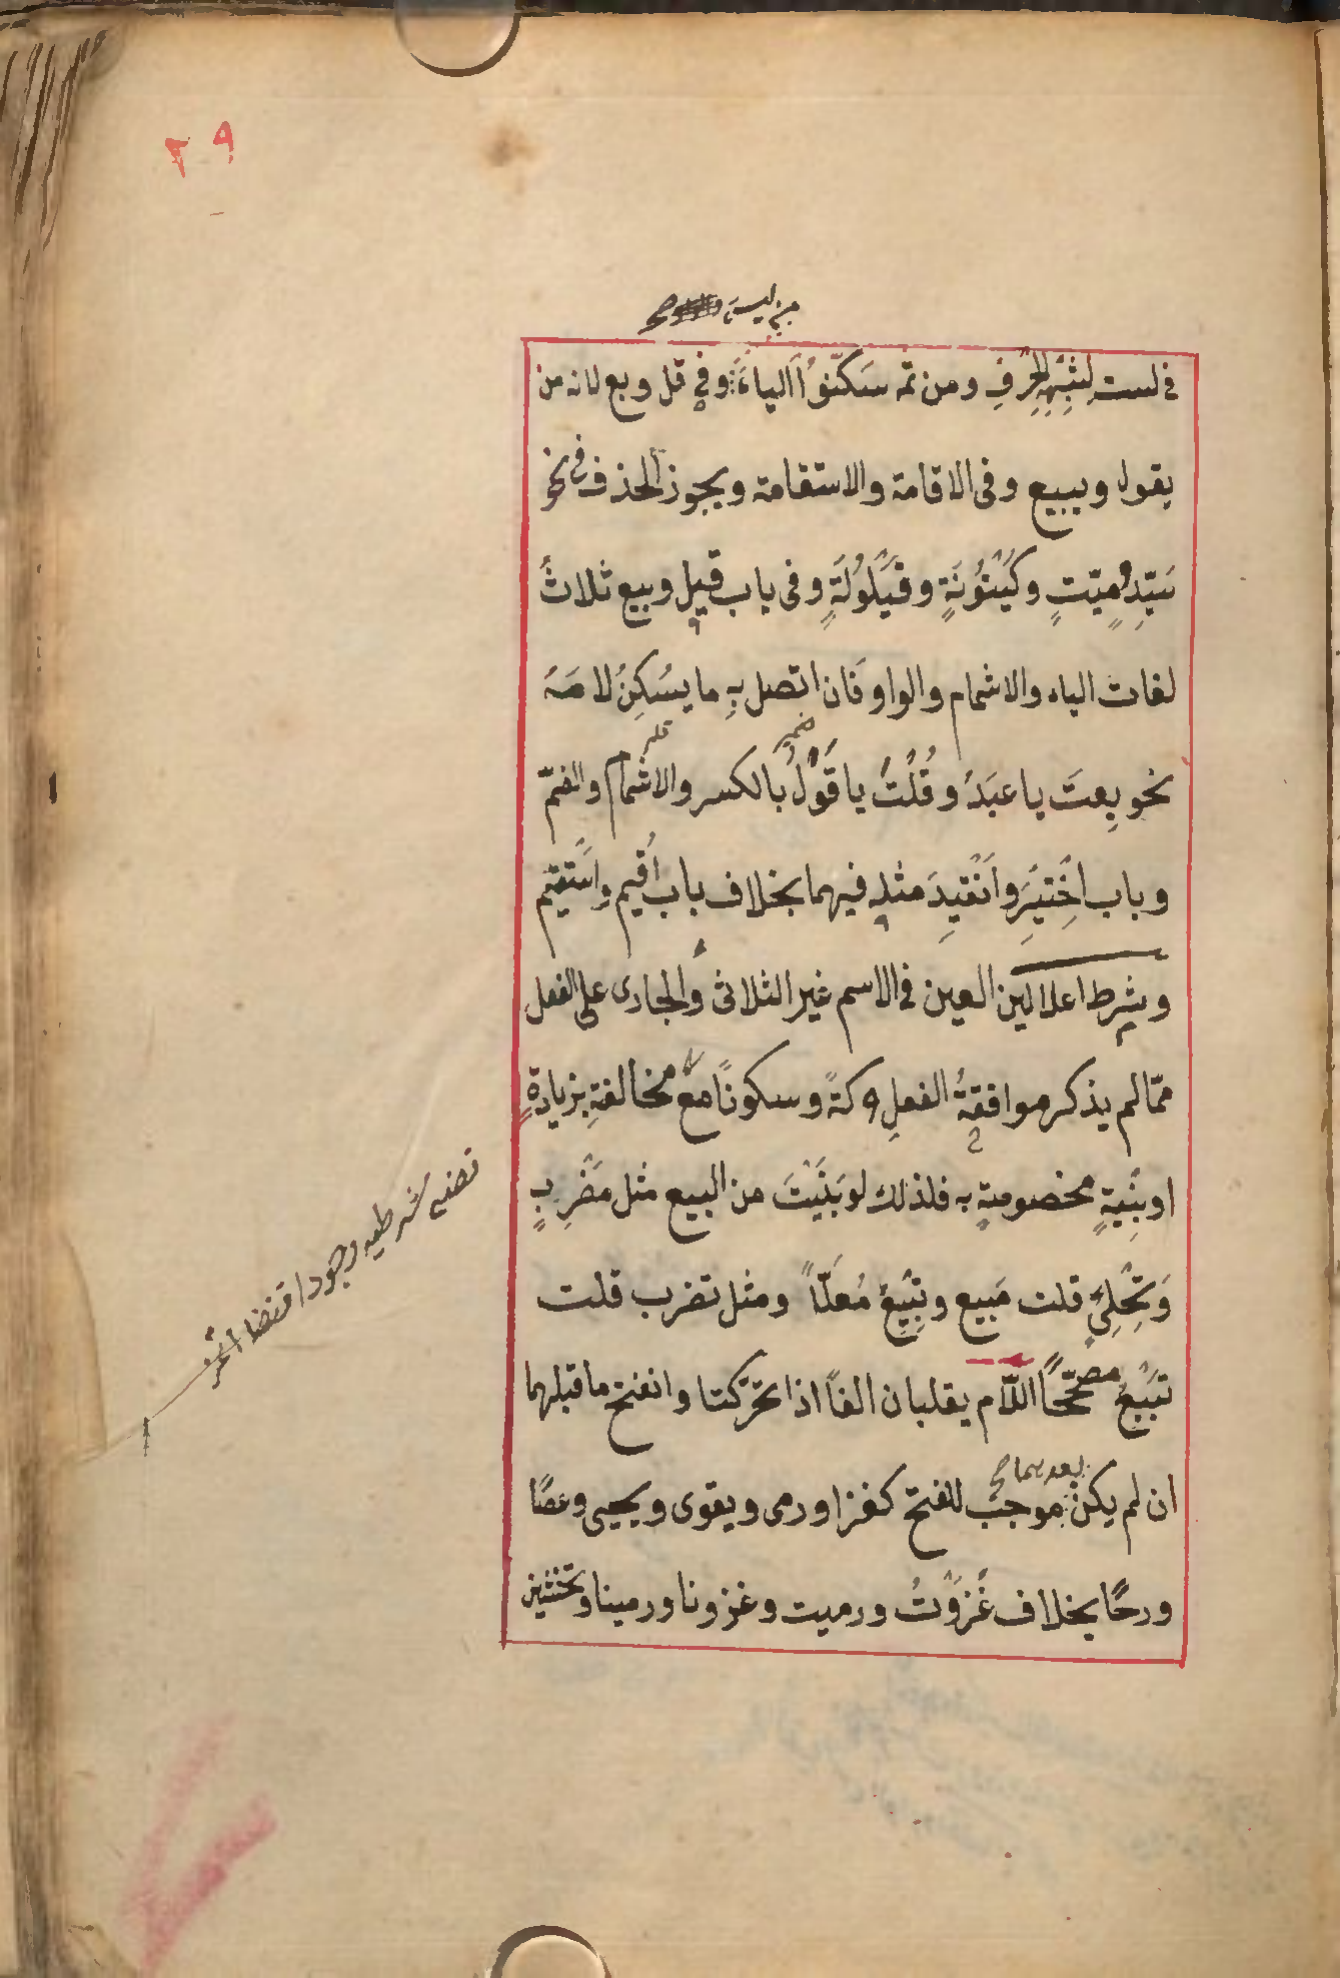 ٢٩
من ليس
فى لست لشبه الحرف ومن ثمه سكّنوا الياء وفى قل وبع لانه من
يقول ويبيع وفى الاقامة والاستقامة ويجوز الحذف فى نحو
سَيّدٍ وميّتٍ وكَيَّنُوْنَةٍ وقَيَّلُوْلَةٍ وفى باب قيل وبيع ثلاثُ
لغات الياء والاشمام والواو فَان اتصل بهِ ما يسْكِنُ لامَهُ
نحو بِعتَ يا عبدُ وقُلْتُ يا قَوْلُ بالكسر والاشمام والضمّ
وباب اخْتيْرَ وانْقيدَ مثله فيهما بخلاف باب اُقيم واستقيم
وشرط اعلال العين فى الاسم غير الثلاثى والجارى على الفعل
ممّا لم يذكر موافقةُ الفعلِ حركةً وسكونًا مع مخالفةٍ بزيادةٍ
او بنْيةٍ مخصوصةٍ به فلذلك لو بَنَيْتَ من البيع مثل مَضْرِبٍ
وَتِحْلِئٍ قلت مَبيع وتِبْيِعٌ مُعَلّاً ومثل تضرب قلت
تَبْيِعُ مصحّحًا اللّام يقلبان الفًا اذا تحرّكتا وانفتح ما قبلهما
بعدهما صح
ان لم يكن موجب للفتح كغزا ورمى ويقوى ويحيى وعصًا
ورحًا بخلاف غَزَوْتُ ورميت وغزونا ورمينا وتخشين
شرطيه وجود اقتضا